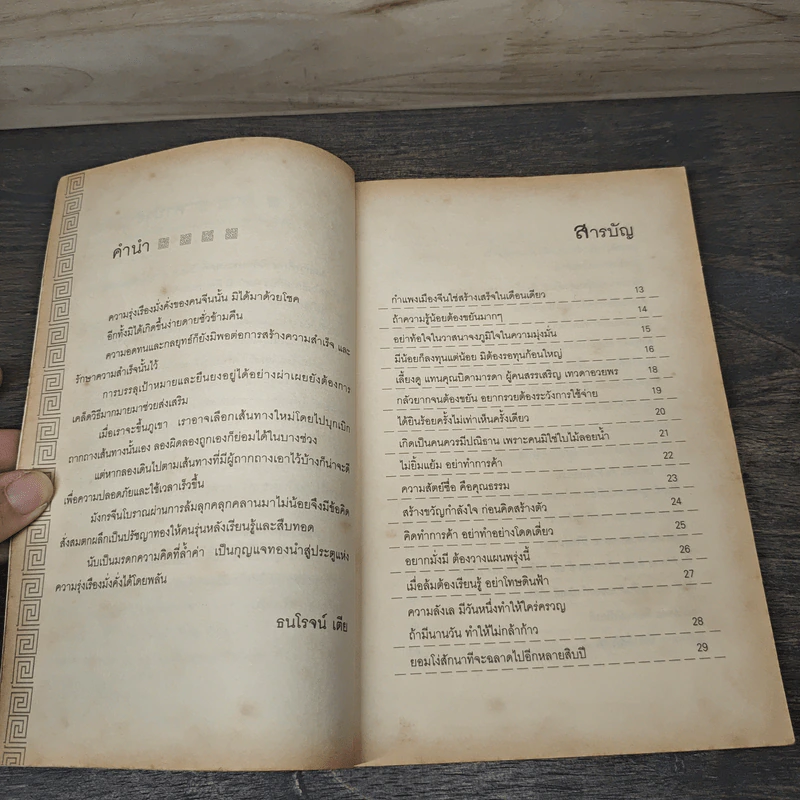 คำนำ
ความรุ่งเรืองมั่งคั่งของคนจีนนั้น มิได้มาด้วยโชค
อีกทั้งมิได้เกิดขึ้นง่ายดายชั่วข้ามคืน
ความอดทนและกลยุทธ์ก็ยังมิพอต่อการสร้างความสำเร็จ และ
รักษาความสำเร็จนั้นไว้
การบรรลุเป้าหมายและยืนยงอยู่ได้อย่างผ่าเผยยังต้องการ
เคล็ดวิธีมากมายมาช่วยส่งเสริม
เมื่อเราจะขึ้นภูเขา เราอาจเลือกเส้นทางใหม่โดยไปบุกเบิก
ถากถางเส้นทางนั้นเอง ลองผิดลองถูกเองก็ย่อมได้ในบางช่วง
แต่หากลองเดินไปตามเส้นทางที่มีผู้ถากถางเอาไว้บ้างก็น่าจะดี
เพื่อความปลอดภัยและใช้เวลาเร็วขึ้น
มังกรจีนโบราณผ่านการล้มลุกคลุกคลานมาไม่น้อยจึงมีข้อคิด
สั่งสมตกผลึกเป็นปรัชญาทองให้คนรุ่นหลังเรียนรู้และสืบทอด
นับเป็นมรดกความคิดที่ล้ำค่า เป็นกุญแจทองนำสู่ประตูแห่ง
ความรุ่งเรืองมั่งคั่งได้โดยพลัน
ธนโรจน์ เตีย
สารบัญ
กำแพงเมืองจีนใช่สร้างเสร็จในเดือนเดียว 13
ถ้าความรู้น้อยต้องขยันมากๆ 14
อย่าท้อใจในวาสนาจงภูมิใจในความมุ่งมั่น 15
มีน้อยก็ลงทุนแต่น้อย มิต้องรอทุนก้อนใหญ่ 16
เลี้ยงดู แทนคุณบิดามารดา ผู้คนสรรเสริญ เทวดาอวยพร 18
กลัวยากจนต้องขยัน อยากรวยต้องระวังการใช้จ่าย 19
ได้ยินร้อยครั้งไม่เท่าเห็นครั้งเดียว 20
เกิดเป็นคนควรมีปณิธาน เพราะคนมิใช่ใบไม้ลอยน้ำ 21
ไม่ยิ้มแย้ม อย่าทำการค้า 22
ความสัตย์ซื่อ คือคุณธรรม 23
สร้างขวัญกำลังใจ ก่อนคิดสร้างตัว 24
คิดทำการค้า อย่าทำอย่างโดดเดี่ยว 25
อยากมั่งมี ต้องวางแผนพรุ่งนี้ 26
เมื่อล้มต้องเรียนรู้ อย่าโทษดินฟ้า 27
ความลังเล มีวันหนึ่งทำให้ใคร่ครวญ
ถ้ามีนานวัน ทำให้ไม่กล้าก้าว 28
ยอมโง่สักนาทีจะฉลาดไปอีกหลายสิบปี 29